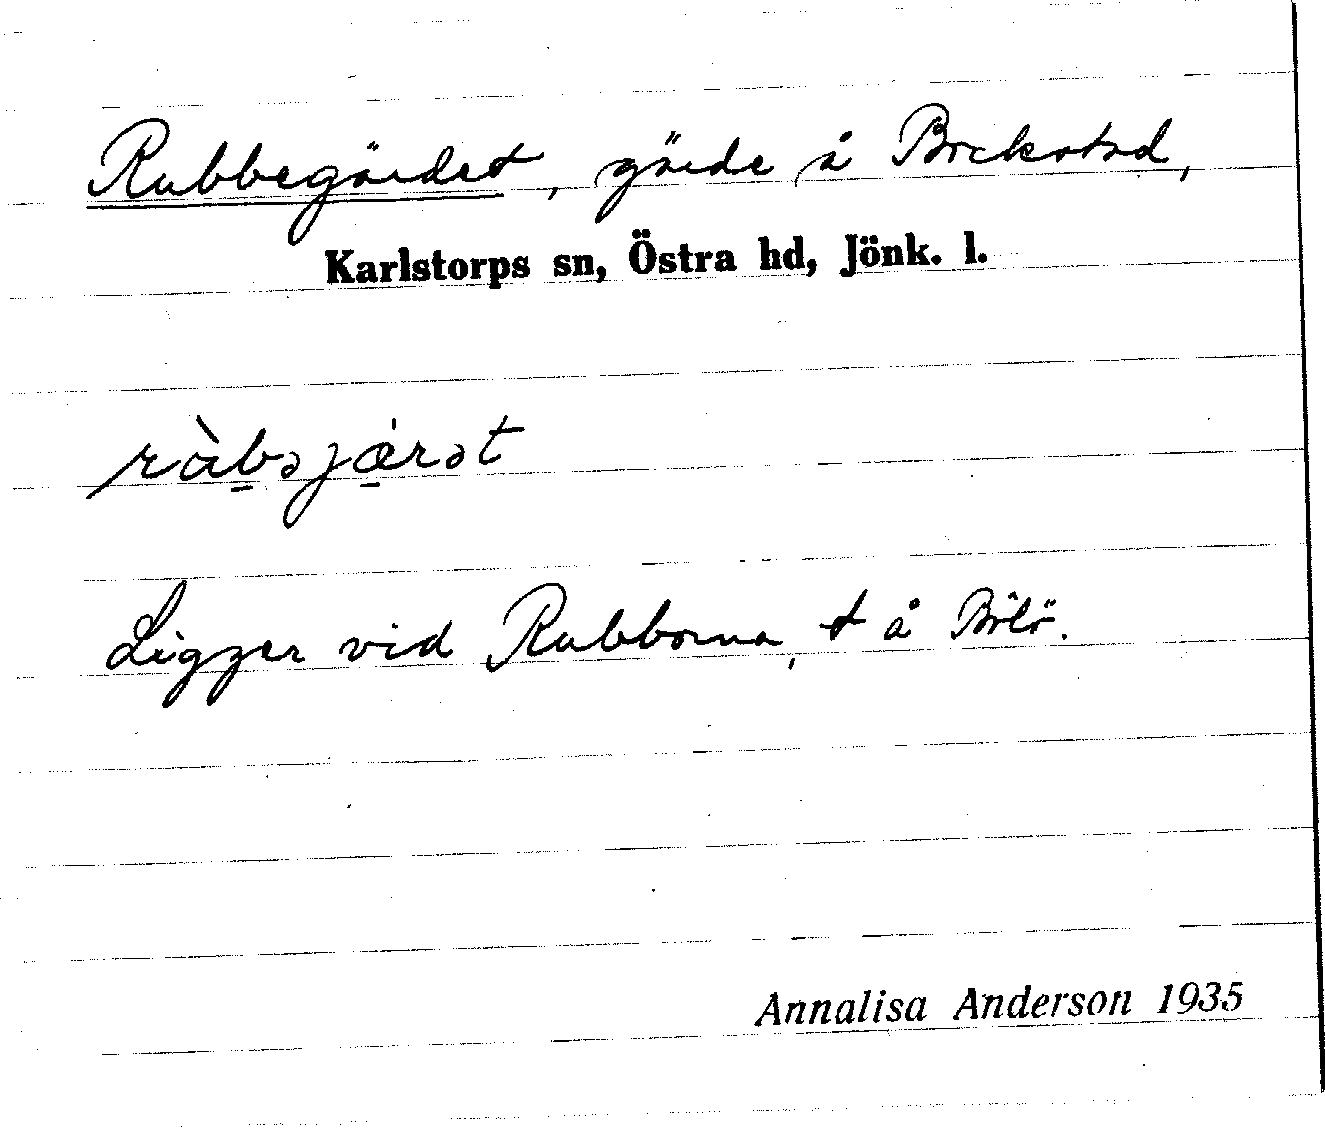 Rubbegärdet, gärde å Bockstad,
Karlstorps sn, Östra hd, Jönk. l.
ràbəjæ̠rət
Ligger vid Rubborna, t å
Annalisa Anderson 1935